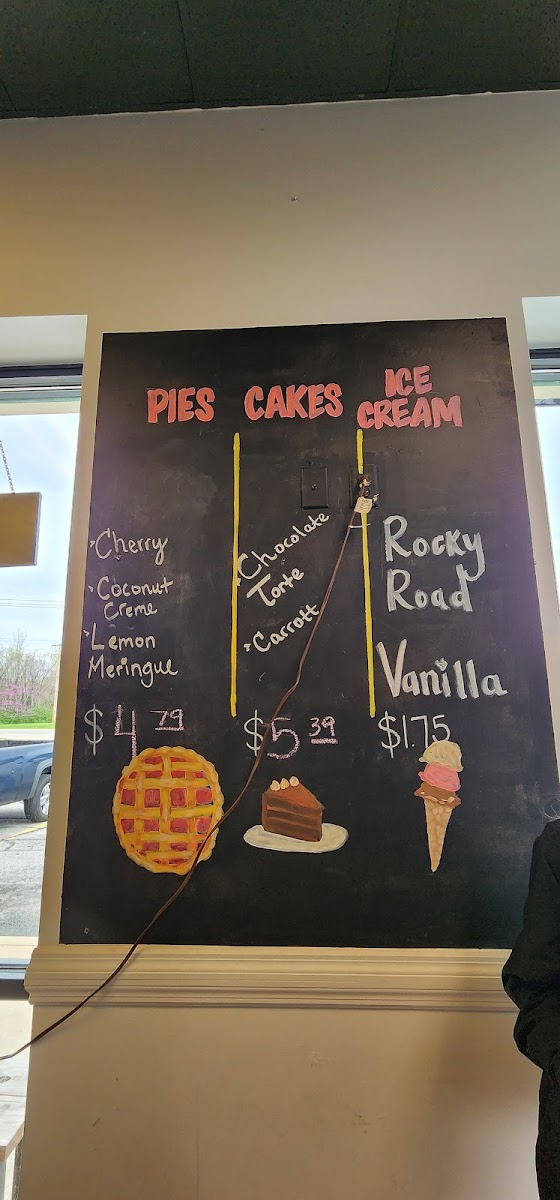 PIES
Cherry
Coconut
Creme
Lemon
Meringue
$4 79
CAKES
Chocolate
Torte
Carrott
$5 39
ICE
CREAM
Rocky
Road
Vanilla
$1.75